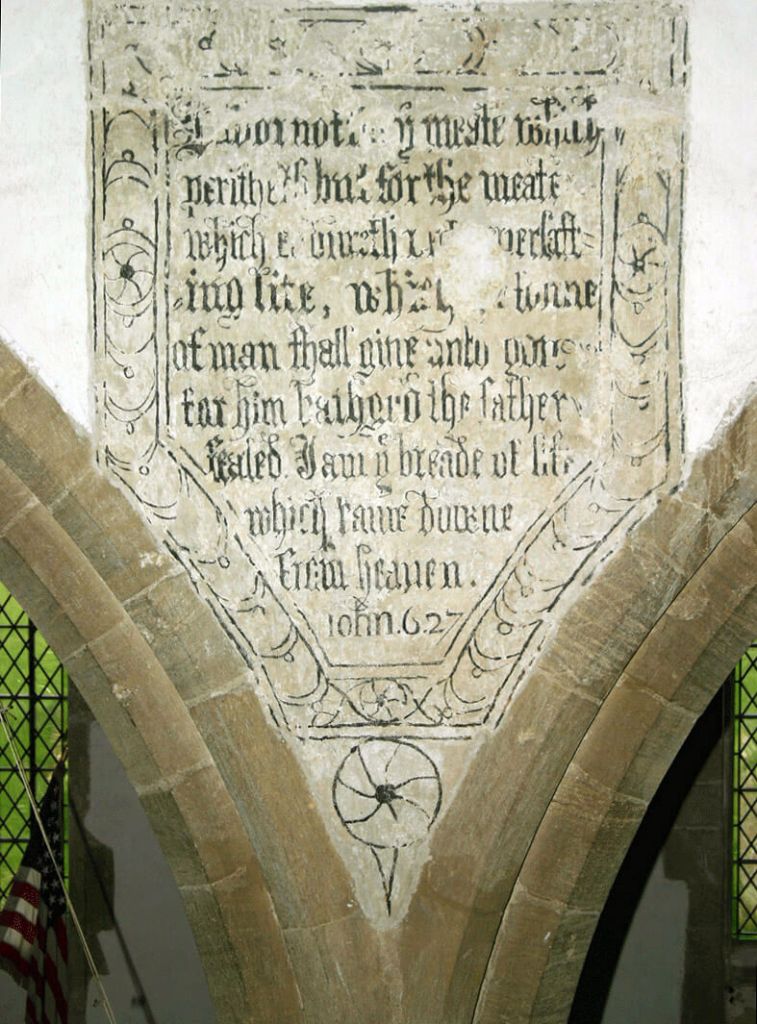 Labor not for yͤ meate which
perisheth but for the meate
which endureth unto everlast-
ing life, which yͤ sonne
of man shall give unto you
for him hath god the father
sealed. I am yͤ breade of life
which came downe
from heaven.
iohn.6.27